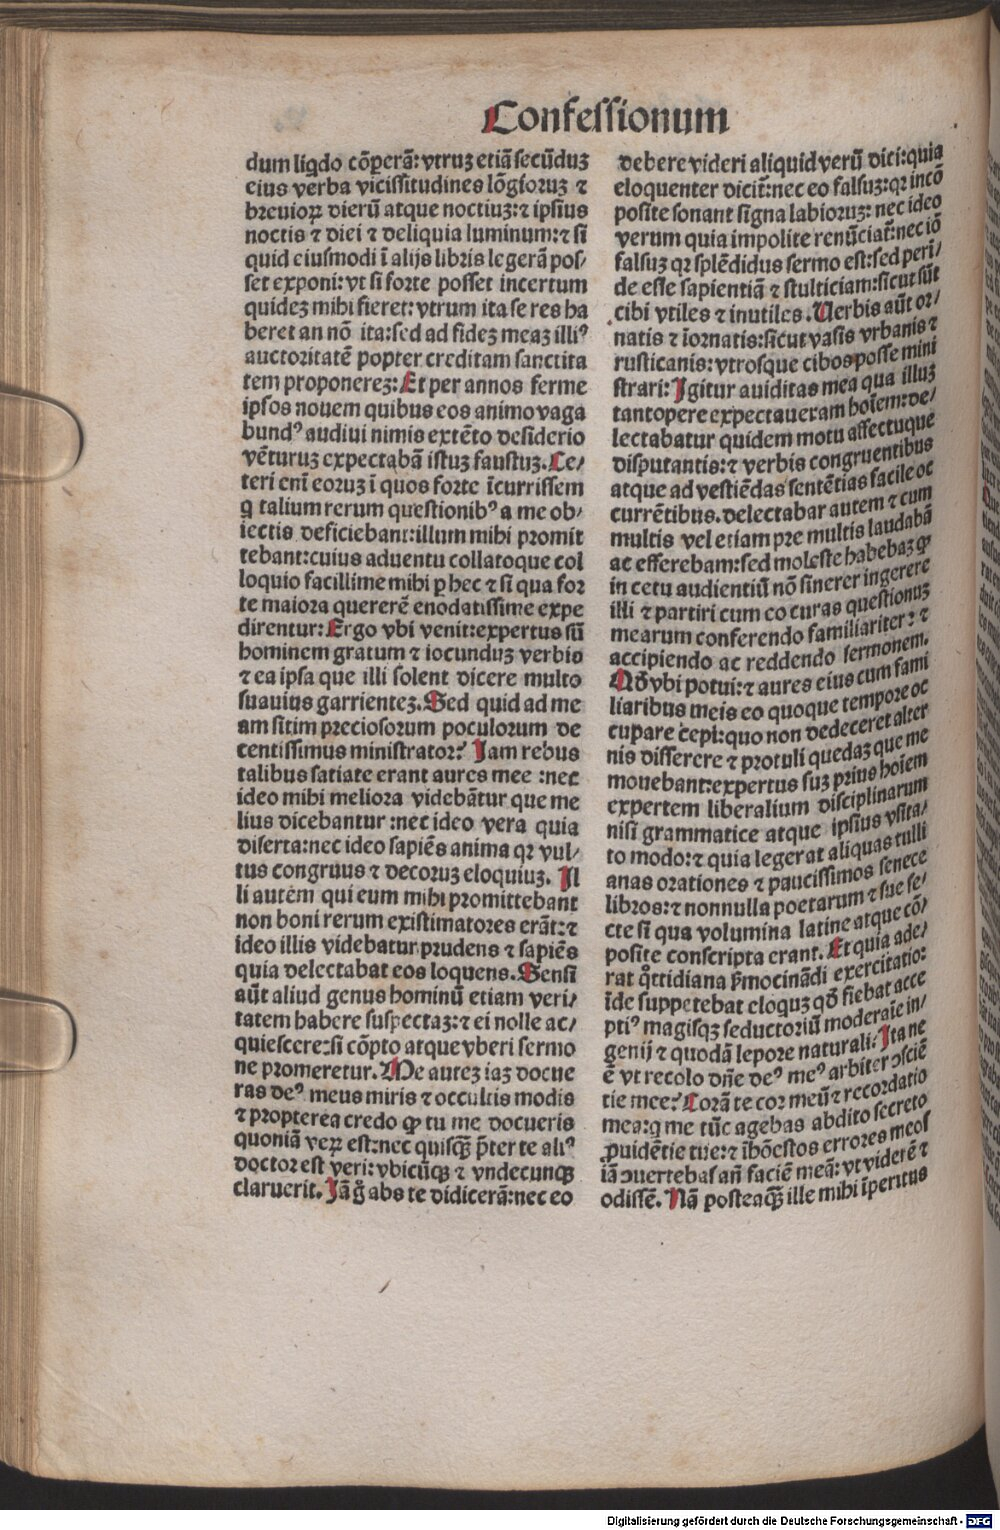 Confessionum
dum liqdo cōperā: vtruz etiā secūduz
eius verba vicissitudines lōgioruz ⁊
breuioꝝ dierū atque noctiuz:⁊ ipsius
noctis ⁊ diei ⁊ deliquia luminum:⁊ si
quid eiusmodi ī alijs libris legerā pos/
set exponi: vt si forte posset incertum
quidez mihi fieret: vtrum ita se res ha
beret an nō ita:sed ad fidez meaz illiꝰ
auctoritatē popter creditam sanctita
tem proponerez: Et per annos ferme
ipsos nouem quibus eos animo vaga
bundꝰ audiui nimis extēto desiderio
vēturuz expectabā istuz faustuz. Ce/
teri enī eoruz ī quos forte īcurrissem
q talium rerum questionibꝰ a me ob/
iectis deficiebant:illum mihi promit
tebant:cuius aduentu collatoque col
loquio facillime mihi ꝑ hec ⁊ si qua for
te maiora quererē enodatissime expe
direntur: Ergo vbi venit:expertus sū
hominem gratum ⁊ iocunduz verbis
⁊ ea ipsa que illi solent dicere multo
suauius garrientez. Sed quid ad me
am sitim preciosorum poculorum de
centissimus ministrator? Iam rebus
talibus satiate erant aures mee :nec
ideo mihi meliora videbātur que me
lius dicebantur :nec ideo vera quia
diserta:nec ideo sapiēs anima qꝛ vul/
tus congruus ⁊ decoruz eloquiuz. Il
li autem qui eum mihi promittebant
non boni rerum existimatores erāt:⁊
ideo illis videbatur prudens ⁊ sapiēs
quia delectabat eos loquens. Sensi
aūt aliud genus hominū etiam veri/
tatem habere suspectaz:⁊ ei nolle ac/
quiescere:si cōpto atque vberi sermo
ne promeretur. Me autez iaz docue
ras deꝰ meus miris ⁊ occultis modis
⁊ propterea credo ꝙ tu me docueris
quoniā veꝝ est:nec quisqꝫ p̄ter te aliꝰ
doctor est veri: vbicūqꝫ ⁊ vndecunqꝫ
claruerit. Iā g̊ abs te didicerā:nec eo
debere videri aliquid verū dici:quia
eloquenter dicit̄:nec eo falsuz:qꝛ incō
posite sonant signa labioruz: nec ideo
verum quia impolite renūciat̄:nec iō
falsuz qꝛ splēdidus sermo est:sed perī/
de esse sapientiā ⁊ stulticiam:sicut sūt
cibi vtiles ⁊ inutiles. Uerbis aūt or/
natis ⁊ īornatis:sicut vasis vrbanis ⁊
rusticanis: vtrosque cibos posse mini
strari: Igitur auiditas mea qua illuz
tantopere expectaueram hoīem:de/
lectabatur quidem motu affectuque
disputantis:⁊ verbis congruentibus
atque ad vestiēdas sentētias facile oc
currētibus. delectabar autem ⁊ cum
multis vel etiam pre multis laudabā
ac efferebam:sed moleste habebaz ꝙ
in cetu audientiū nō sinerer ingerere
illi ⁊ partiri cum eo curas questionuz
mearum conferendo familiariter: ⁊
accipiendo ac reddendo sermonem.
Qd̄ vbi potui:⁊ aures eius cum fami
liaribus meis eo quoque tempore oc
cupare cepi:quo non dedeceret alter
nis disserere ⁊ protuli quedaz que me
mouebant:expertus suz prius hoīem
expertem liberalium disciplinarum
nisi grammatice atque ipsius vsita/
to modo:⁊ quia legerat aliquas tulli
anas orationes ⁊ paucissimos senece
libros:⁊ nonnulla poetarum ⁊ sue se/
cte si qua volumina latine atque cō/
posite conscripta erant. Et quia ade/
rat q̊ttidiana s̄mocinādi exercitatio:
īde suppetebat eloquz qd̄ fiebat acce
ptiꝰ magisqꝫ seductoriū moderaīe in/
genij ⁊ quodā lepore naturali? Ita ne
ē vt recolo dn̄e deꝰ meꝰ arbiter ↄsciē
tie mee? Corā te cor meū ⁊ recordatio
mea:q me tūc agebas abdito secreto
ꝓuidētie tue:⁊ īhōestos errores meos
iā ↄuertebas an̄ faciē meā: vt viderē ⁊
odissē. Nā posteaqꝫ ille mihi īperitus
Digitalisierung gefördert durch die Deutsche Forschungsgemeinschaft - DFG